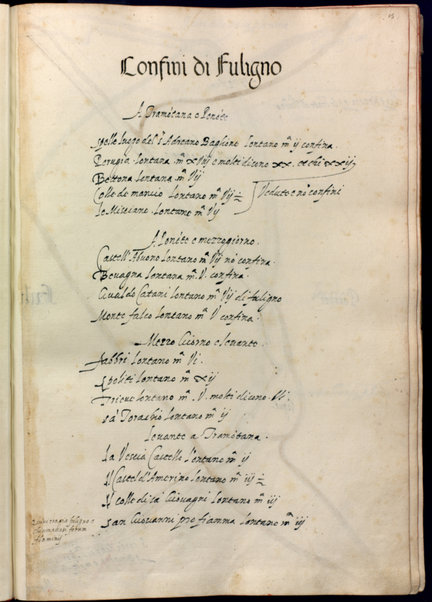 15
Confini di Fuligno
A Tramōtana e Ponēte
Spello luogo del S. Adreano Baglione lontano mª ij confina.
Perugia lontana mª xvij e molti dicono xx. et chi xxij
Bettona lontana mª vij
Colle de mancio lontano mª vij
le Missiane lontane mª vij
Vedute e nō confini
A Ponēte e mezzogiorno.
Castell' Buono lontano mª vij nō confina.
Bevagna lontana mª V. confina.
Gualdo Catani lontano mª vij di fuligno
Monte falco lontano mª V confina.
Mezzo Giorno e levante.
fabbri lontano mª vi.
Spoliti lontano mª xij
Trievi lontano mª V. molti dicono VI.
sā ToraChio lontano mª ij
levante a Tramōtana.
la Vescia Castello lontano mª ij
Il Castell' Amerino lontano mª iij
Il colle di sā Giovagni lontano mª iij
san Giovanni pro fiamma lontano mª iij